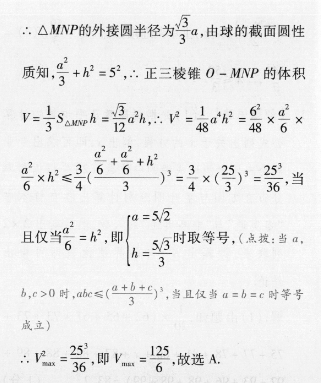 ∴ △MNP的外接圆半径为√3/3 a,由球的截面圆性
质知,a²/3 + h² = 5²,∴ 正三棱锥 O - MNP 的体积
V = 1/3 S△MNP h = √3/12 a²h,∴ V² = 1/48 a⁴h² = 6²/48 × a²/6 ×
a²/6 × h² ≤ 3/4 ((a²/6 + a²/6 + h²)/3)³ = 3/4 × (25/3)³ = 25³/36,当
且仅当 a²/6 = h²,即 { a = 5√2, h = 5√3/3 时取等号,(点拨:当 a,
b,c > 0 时,abc ≤ ((a + b + c)/3)³,当且仅当 a = b = c 时等号
成立)
∴ V²max = 25³/36,即 Vmax = 125/6,故选 A.